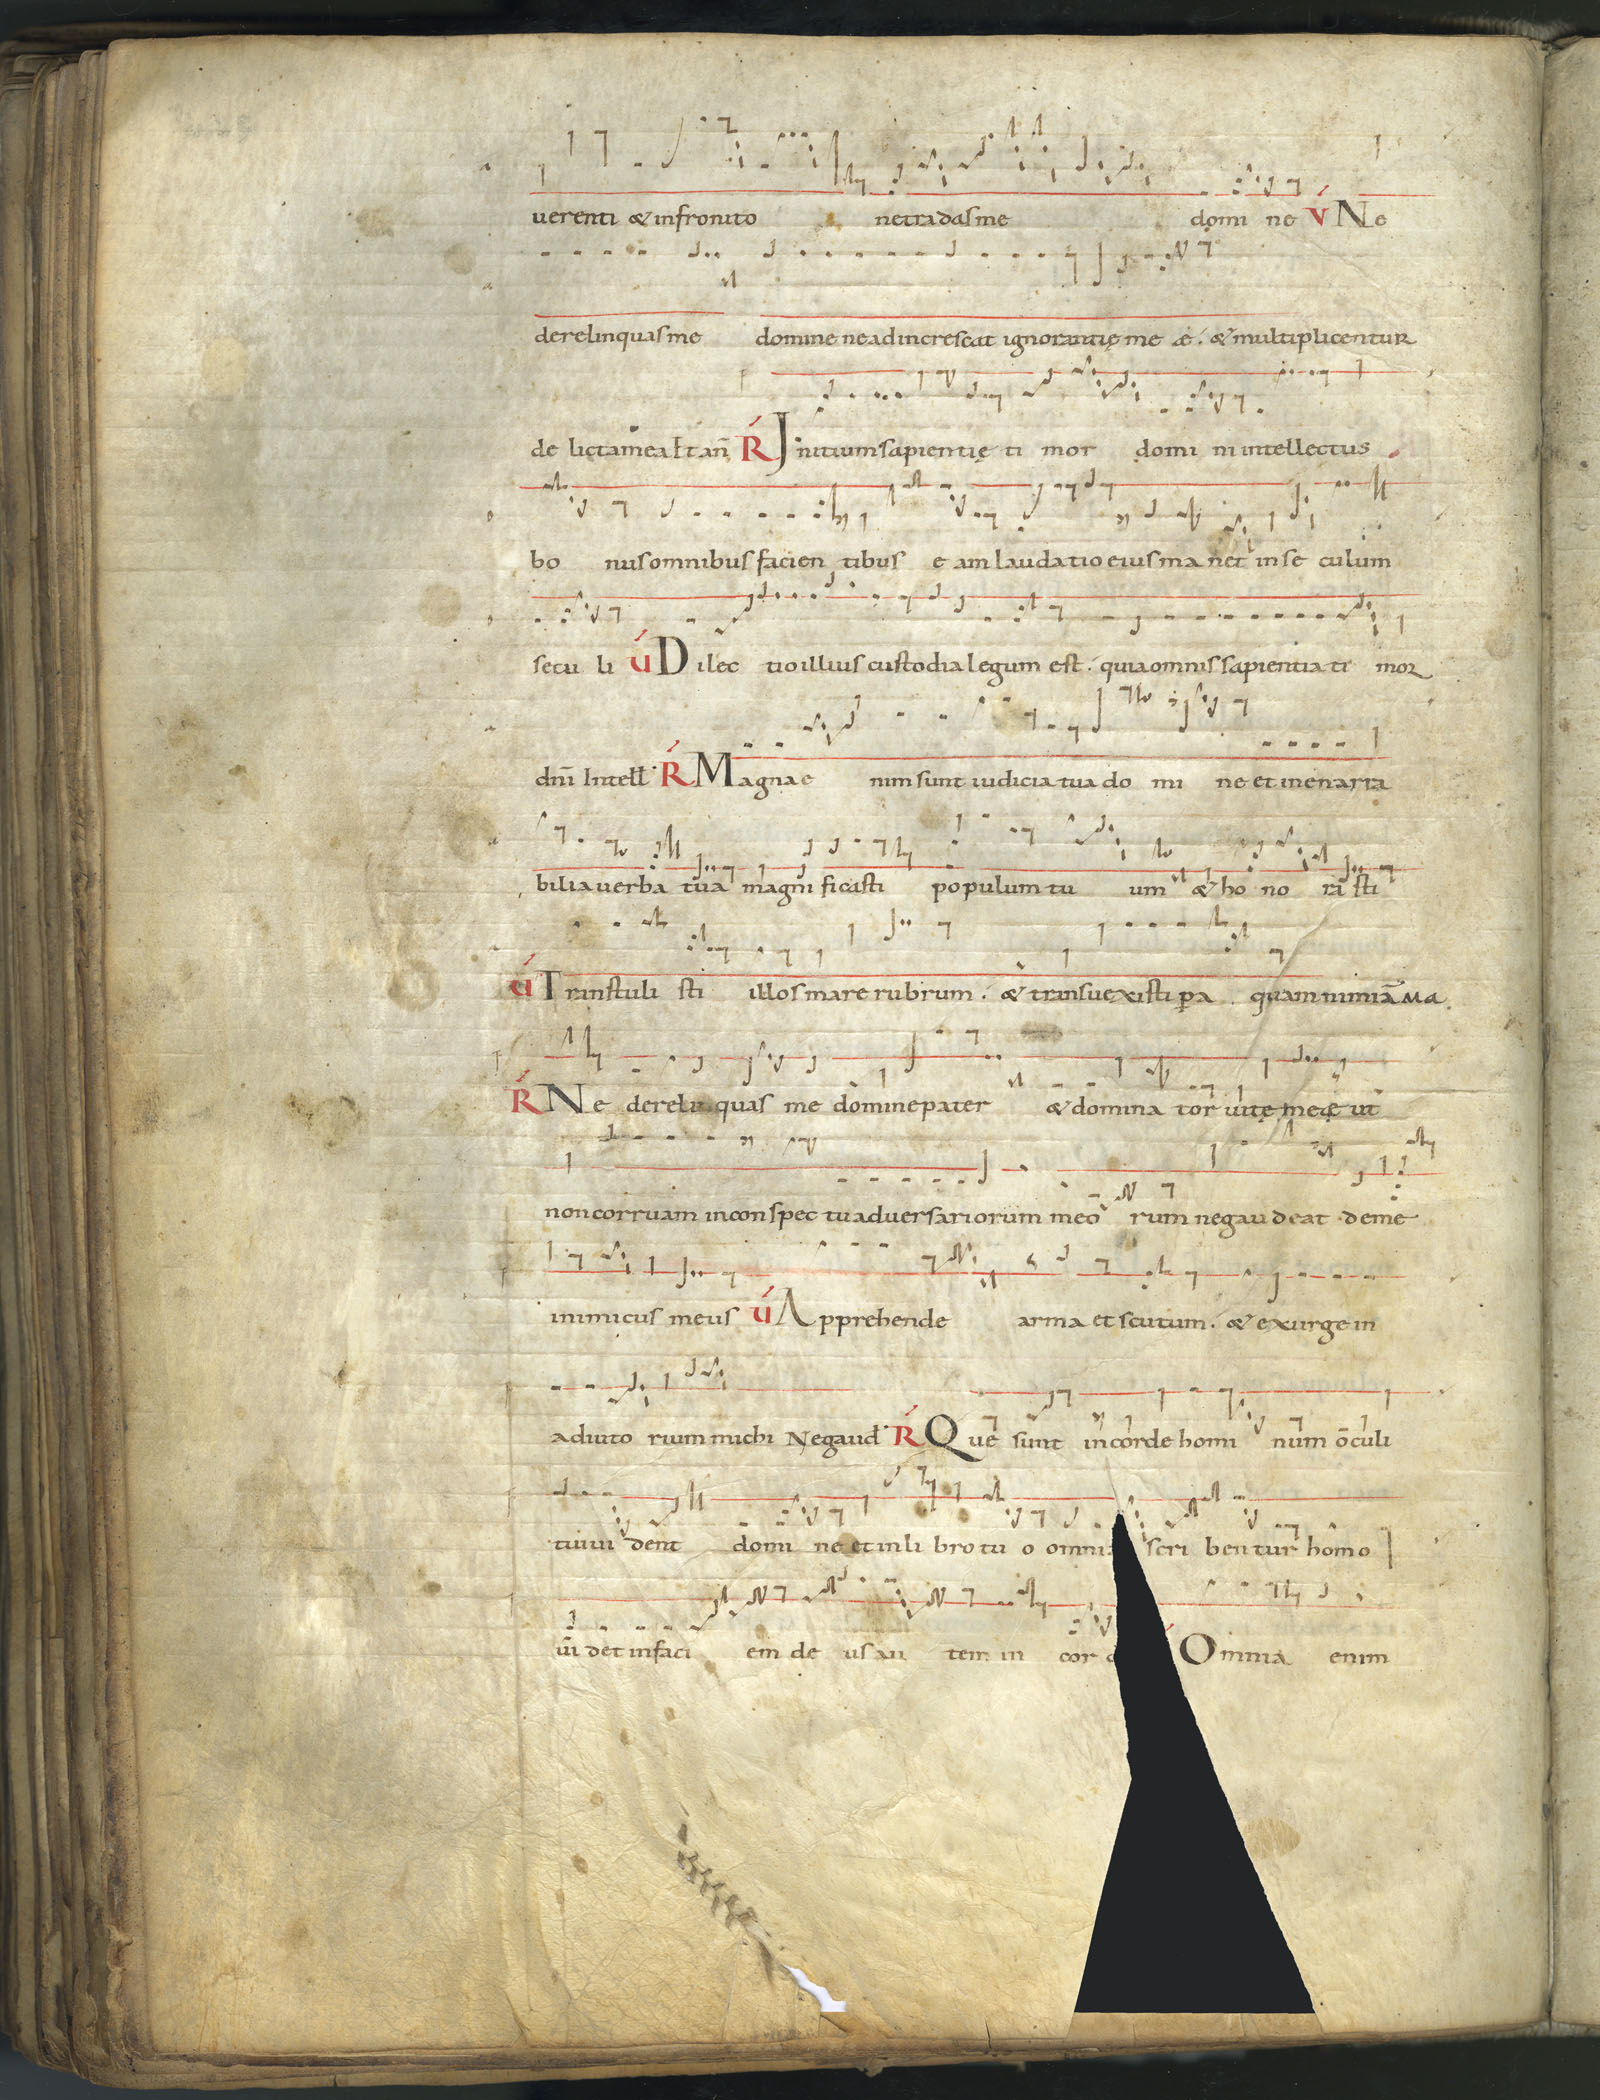 uerenti & infronito ne tradas me domi ne V Ne
derelinquas me domine ne adincrescat ignorantię me æ. & multiplicentur
de licta mea Ł tañ R Initium sapientię ti mor domi ni intellectus
bo nus omnibus facien tibus e am laudatio eius ma net in se culum
secu li V Dilec tio illius custodia legum est. quia omnis sapientia ti mor
dñi Intell R Magna e nim sunt iudicia tua do mi ne et inenarra
bilia uerba tua magni ficasti populum tu um & ho no ra sti
V Transtuli sti illos mare rubrum. & transuexisti pa quam nimiã Ma
R Ne derelin quas me domine pater & domina tor uitę meę ut
non corruam in conspec tu aduersariorum meo rum ne gau deat de me
inimicus meus V Apprehende arma et scutum. & exurge in
adiuto rium michi Ne gaud R Que sunt in corde homi num oculi
tui ui dent domi ne et in li bro tu o omnia scri ben tur homo
ui det in faci em de us au tem in cor Omnia enim